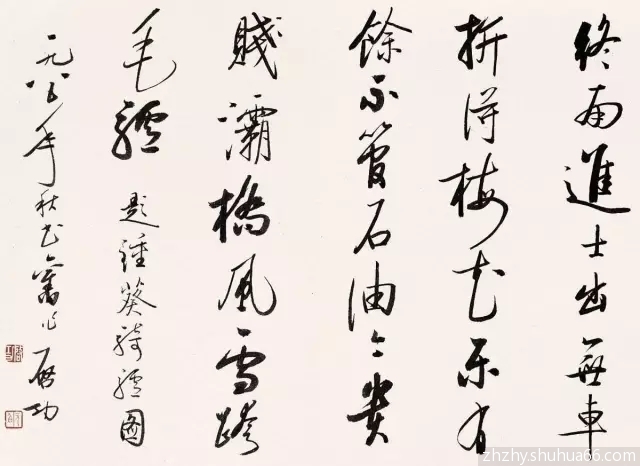 終南進士出無車
折得梅花樂有
餘不管石油々貴
賤灞橋風雪跨
毛驢 題鍾葵騎驢圖
一九八五年秋書舊作 啟功
zhzhy.shuhua66.com